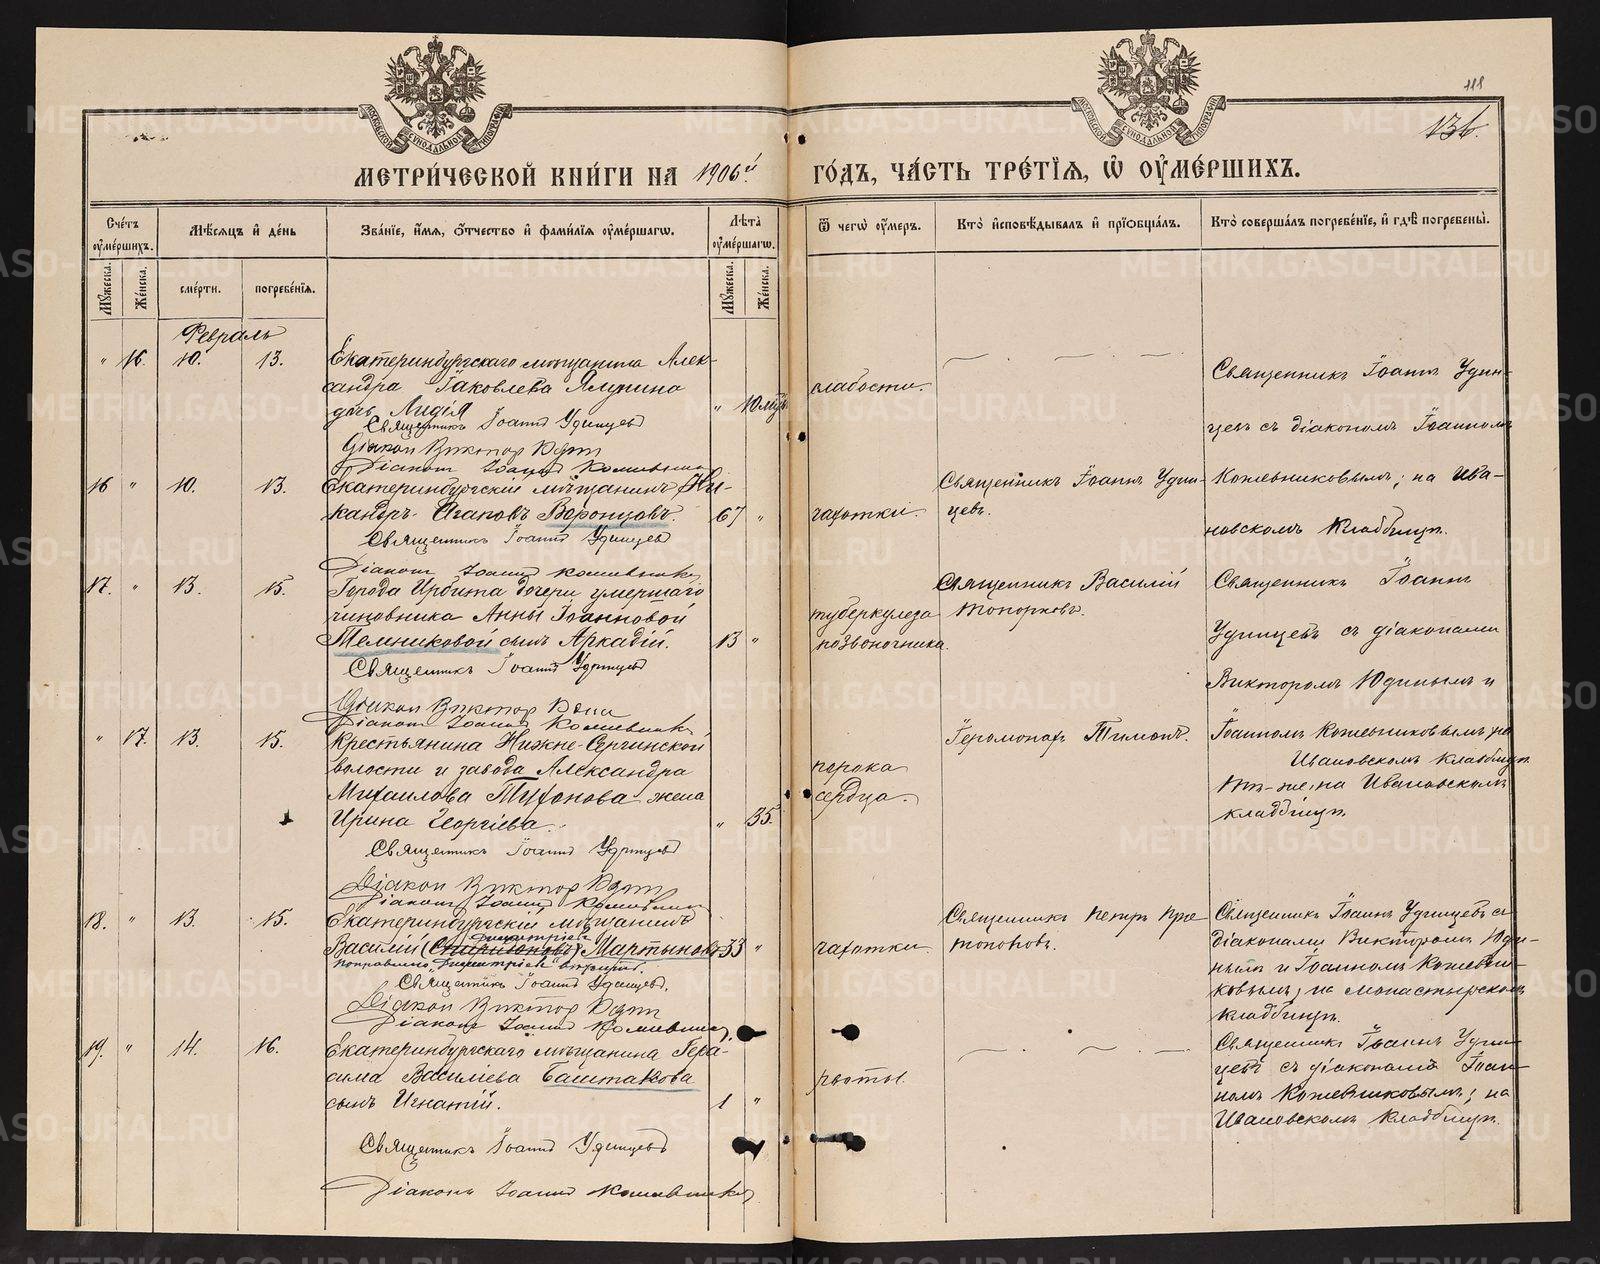 118
136.
МЕТРИ́ЧЕСКОЙ КНИ́ГИ НА 1906й
ГО́ДЪ, ЧА́СТЬ ТРЕ́ТІѦ, Ѡ҆ ОУ҆МЕ́РШИХЪ.
Сче́тъ оу҆ме́ршихъ.
Мꙋжеска.
Же́нска.
Мѣ́сѧцъ и҆ де́нь
сме́рти.
погребе́нїѧ.
Зва́нїе, и҆́мѧ, ѻ҆́тчество и҆ фами́лїѧ оу҆ме́ршагѡ.
Лѣ́та оу҆ме́ршагѡ.
Мꙋжеска.
Же́нска.
Ѿ чегѡ̀ оу҆́меръ.
Кто̀ и҆сповѣ́дывалъ и҆ прїѡбща́лъ.
Кто̀ соверша́лъ погребе́нїе, и҆ гдѣ̀ погребены̀.
Февраль
" 16. 10. 13.
Екатеринбургскаго мѣщанина Алек-
сандра Іаковлева
дочь Лидія
" 10
Священникъ Іоаннъ Удинцевъ
Діаконъ Викторъ Юдинъ
Діаконъ Іоаннъ Кожевниковъ
слабости.
Священникъ Іоаннъ Удин-
цевъ съ діакономъ Іоанномъ
Кожевниковымъ; на Ива-
новскомъ кладбищѣ.
16 " 10. 13.
Екатеринбургскій мѣщанинъ Ни-
кандръ Агаповъ Воронцовъ. 67 "
Священникъ Іоаннъ Удинцевъ
Діаконъ Іоаннъ Кожевниковъ
чахотки.
Священникъ Іоаннъ Удин-
цевъ.
17. " 13. 15.
Города Ирбита дочери умершаго
чиновника Анны Іоанновой
Темниковой сынъ Аркадій. 13 "
Священникъ Іоаннъ Удинцевъ
Діаконъ Викторъ Юдинъ
Діаконъ Іоаннъ Кожевниковъ
туберкулеза
позвоночника.
Священникъ Василій
Топорковъ.
Священникъ Іоаннъ
Удинцевъ съ діаконами
Викторомъ Юдинымъ и
Іоанномъ Кожевниковымъ; на
Ивановскомъ кладбищѣ.
" 17. 13. 15.
Крестьянина Нижне-Сергинской
волости и завода Александра
Михаилова Туфонова жена
Ирина Георгіева. " 35.
Священникъ Іоаннъ Удинцевъ
Діаконъ Викторъ Юдинъ
Діаконъ Іоаннъ Кожевниковъ
порока
сердца.
Іеромонахъ Тимонъ.
Тѣ-же; на Ивановскомъ
кладбищѣ.
18. " 13. 15.
Екатеринбургскій мѣщанинъ
Димитріевъ
Василій (Спиридоновъ) Мартыновъ 33 "
Поправлено „Димитріевъ"
Священникъ Іоаннъ Удинцевъ.
Діаконъ Викторъ Юдинъ
Діаконъ Іоаннъ Кожевниковъ
чахотки.
Священникъ Петръ Про-
топоповъ.
Священникъ Іоаннъ Удинцевъ съ
діаконами Викторомъ Юди-
нымъ и Іоанномъ Кожевни-
ковымъ; на монастырскомъ
кладбищѣ.
19. " 14. 16.
Екатеринбургскаго мѣщанина Гера-
сима Василіева Баштакова
сынъ Игнатій. 1 "
Священникъ Іоаннъ Удинцевъ
Діаконъ Іоаннъ Кожевниковъ
рвоты.
Священникъ Іоаннъ Удин-
цевъ съ діакономъ Іоан-
номъ Кожевниковымъ; на
Ивановскомъ кладбищѣ.
METRIKI.GASO-URAL.RU